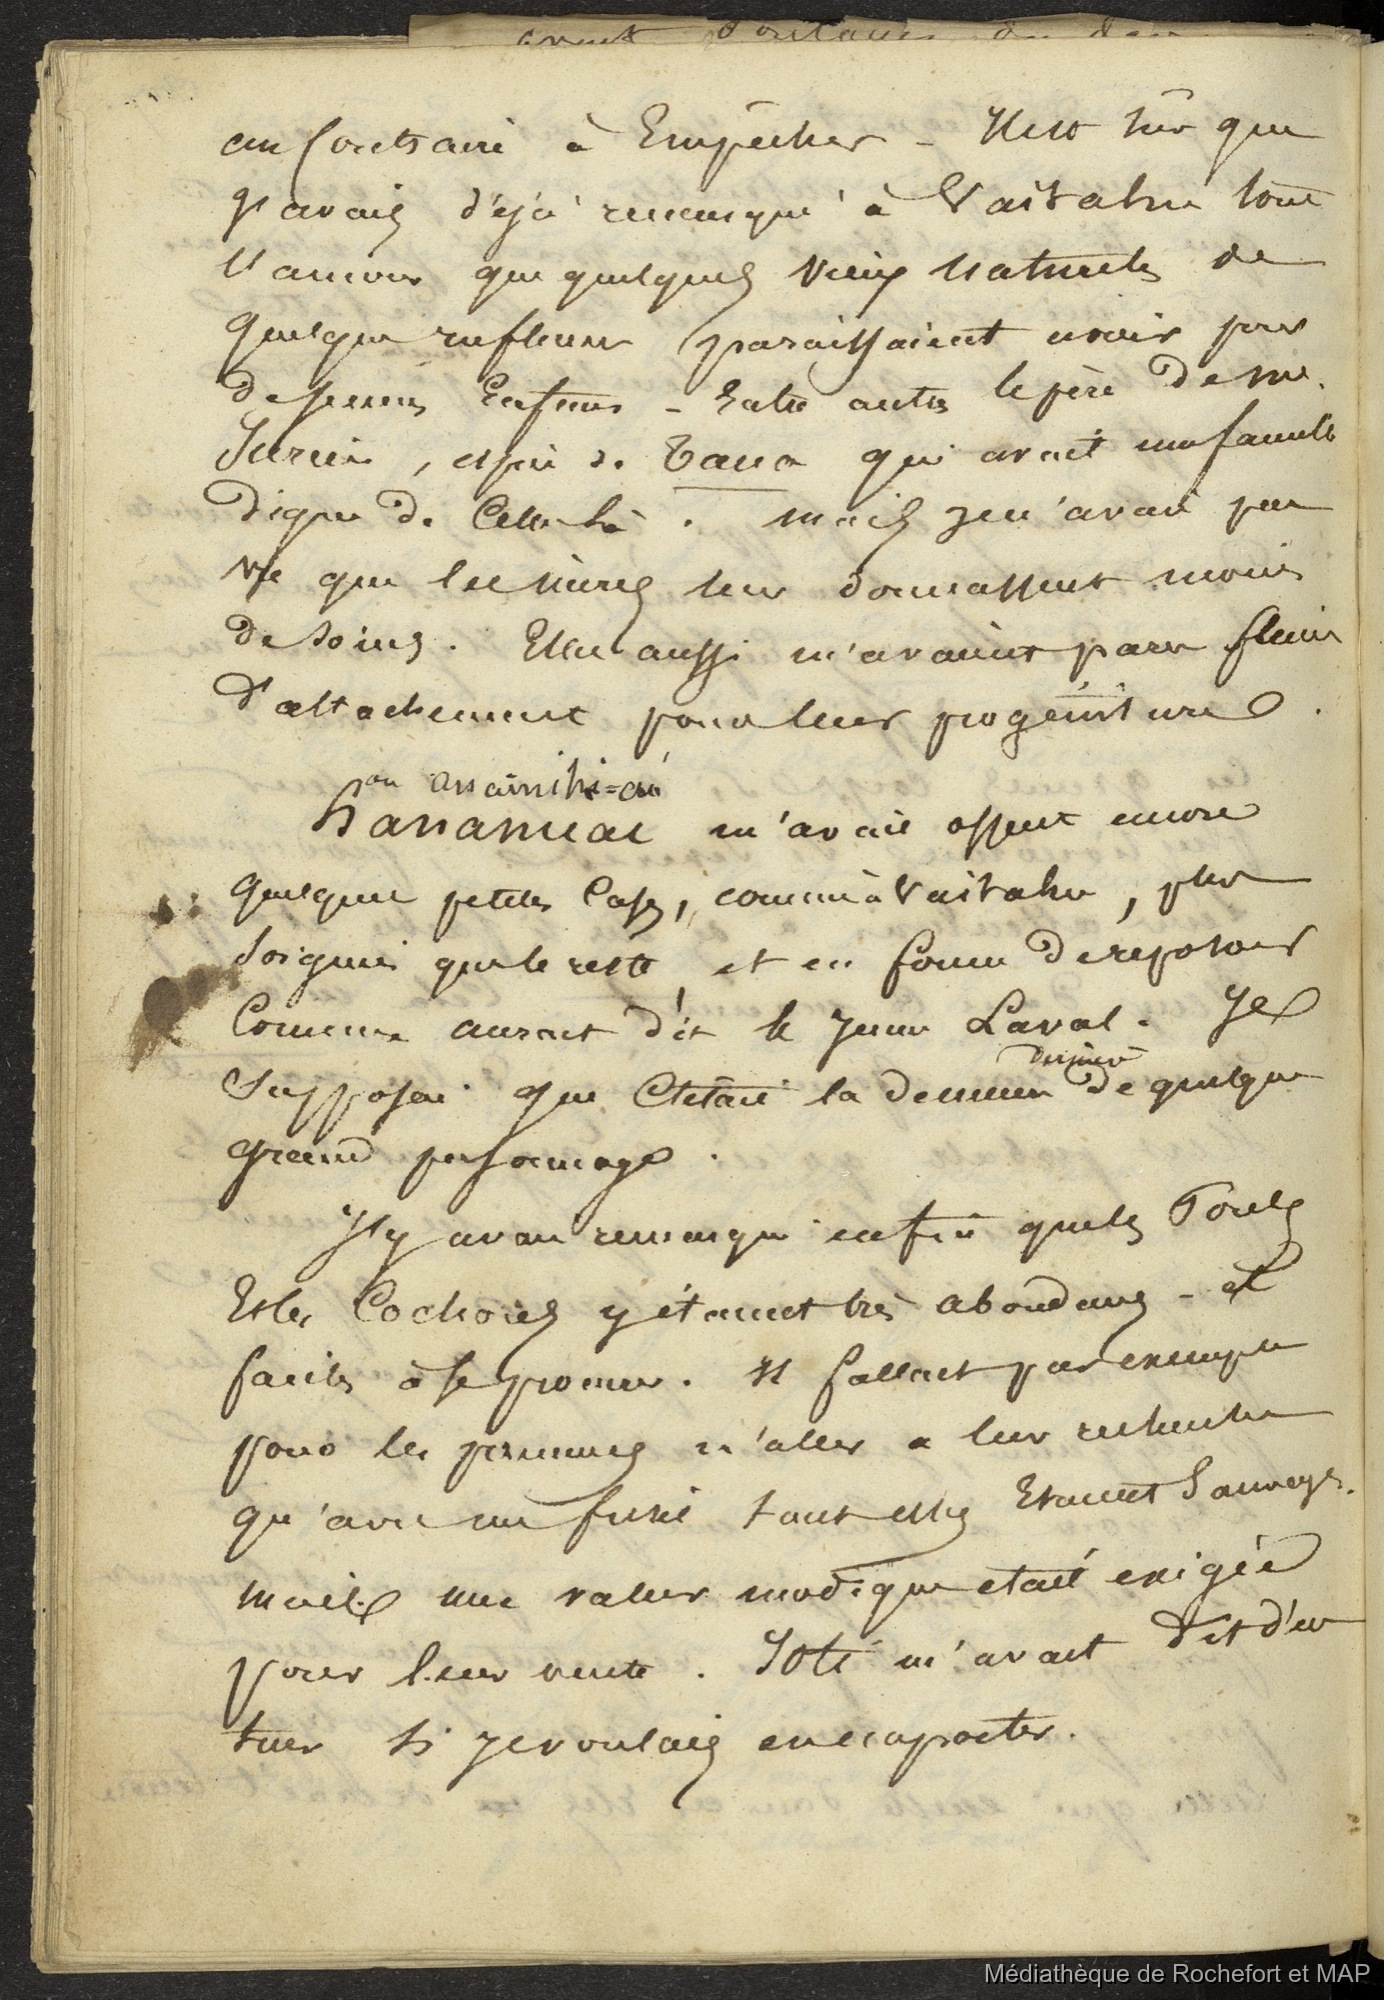 au Contraire à Empêcher - Il est sûr que
j'avais déjà remarqué à Vaitahu tout
l'amour que quelques vieux naturels de
quelque influence paraissaient avoir pour
de jeunes Enfans - Entre autres le père de
, de Taua qui avait une famille
digne de Celle là . mais je n'avais pas
vu que les mères leur donnassent moins
de soins . Elles aussi m'avaient paru pleines
d'attachement pour leur progéniture .
ou
Hanamiai m'avait offert encore
quelques petites Cases, comme à Vaitahu, plus
soignées que le reste et en forme de reposoir
Comme aurait dit le jeune Laval . Je
dernière
supposai que C'était la demeure de quelque
grand personnage .
J'y avais remarqué enfin que les Poules
Et les Cochons y étaient très abondans - et
faciles à se procurer . Il fallait par exemple
pour les premières n'aller à leur recherche
qu'avec un fusil tant elles Etaient Sauvages .
mais une valeur modique était exigée
pour leur vente . Ioté m'avait dit d'en
tuer si je voulais en emporter .
Médiathèque de Rochefort et MAP